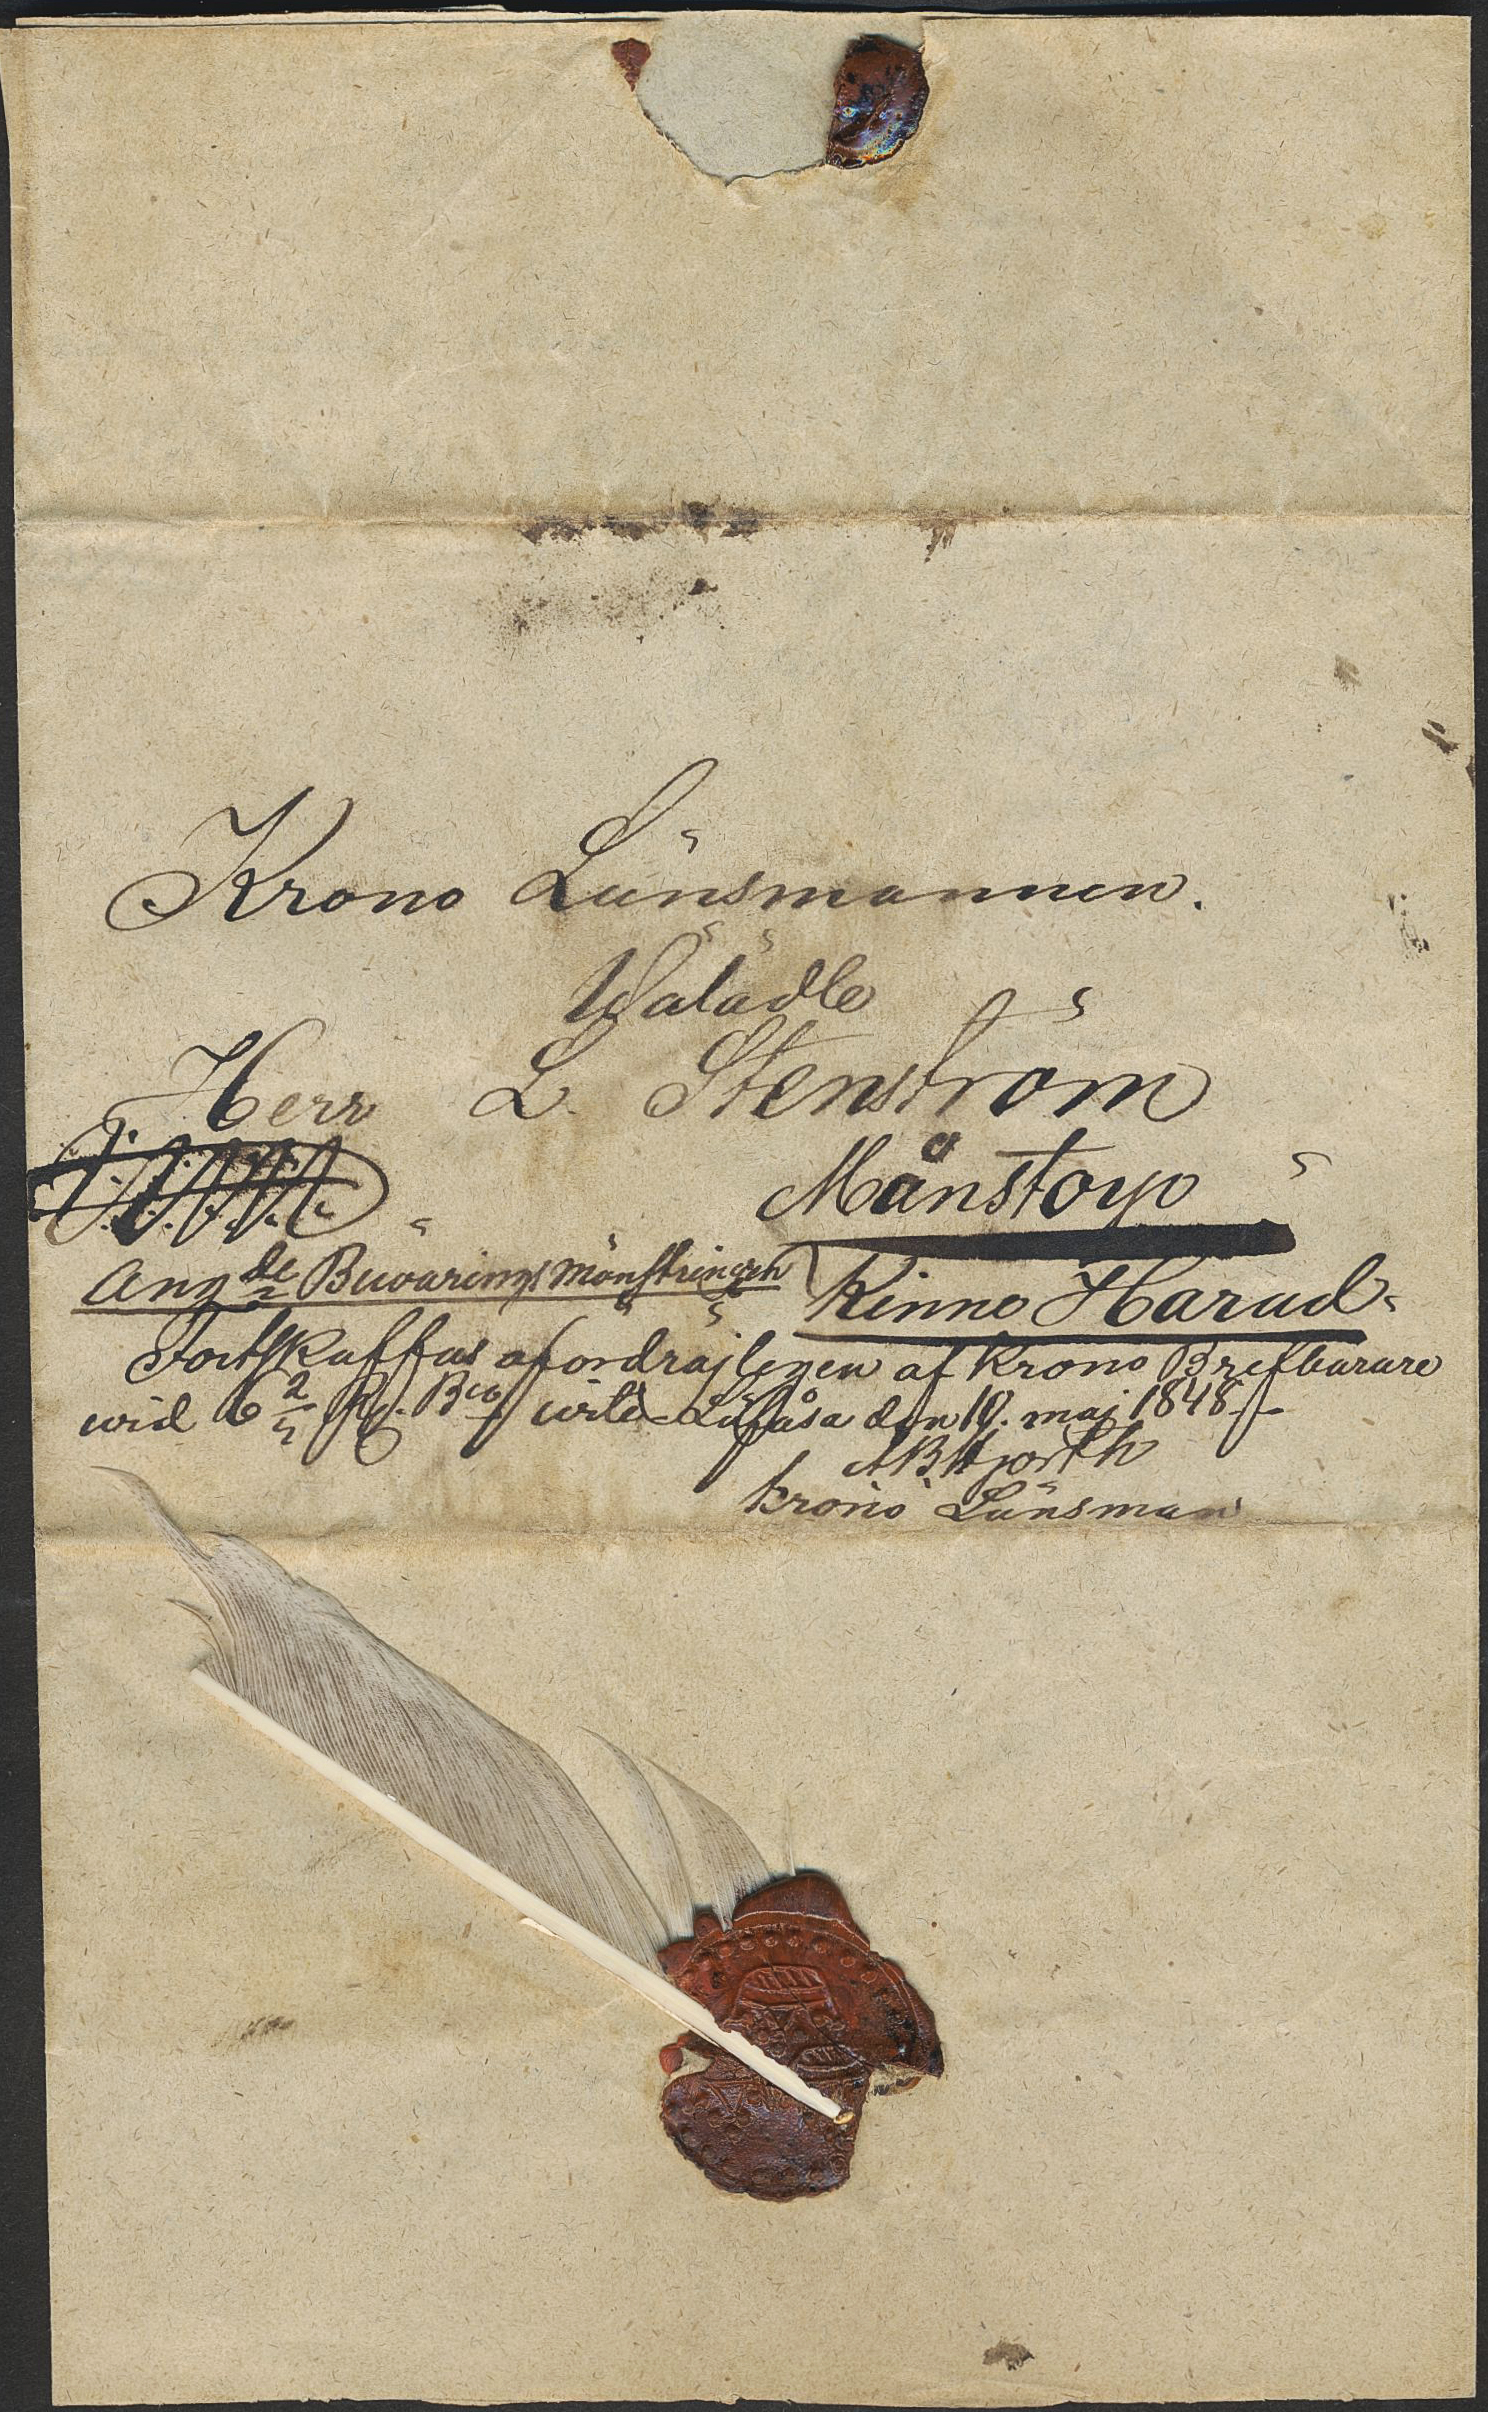 Krono Länsmannen.
Wälädle
Herr L. Stenström
Månstorp
Ang de Bewärings Mönstringen
Kinne Härad
Fortskaffas ofördröjligen af Krono Brefbärare
wid 6 2/3 Rd. Bco wite Löfåsa den 10. maj 1848
AB Hjorth
Krono Länsman